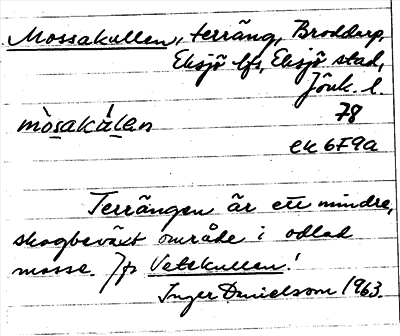 Mossakullen, terräng, Broddarp,
Eksjö lfs, Eksjö stad,
Jönk. l.
mòsakálen 78
ek 6F9a
Terrängen är ett mindre,
skogbeväxt område i odlad
mosse. Jfr Vetekullen!
Inger Danielsson 1963.